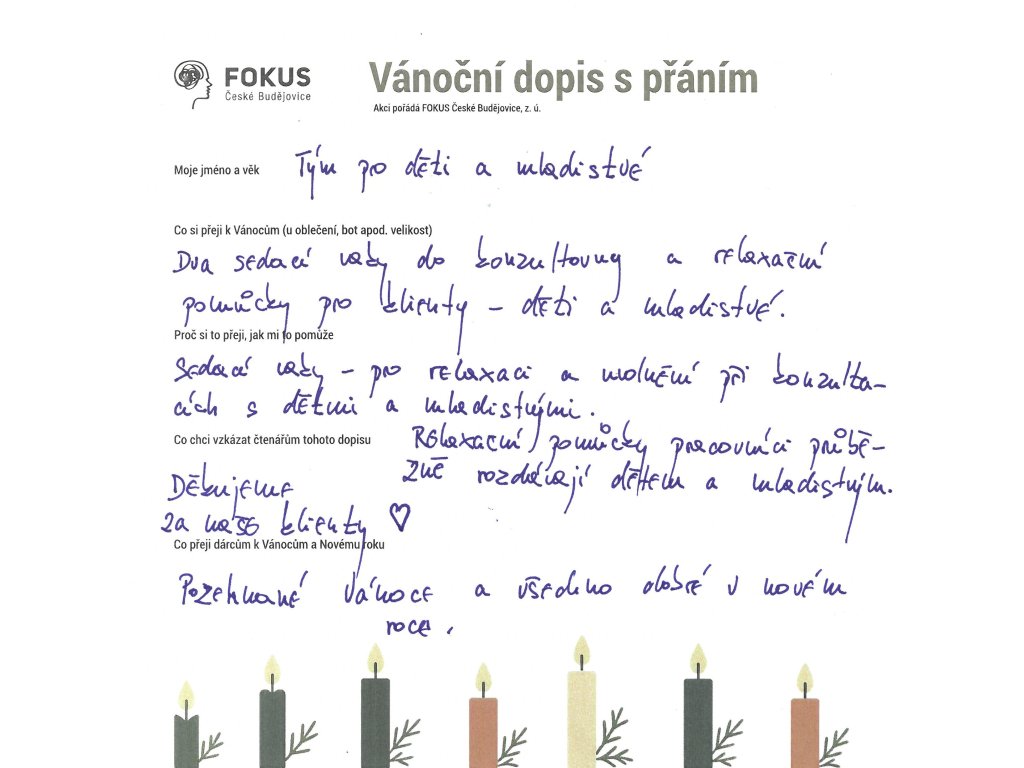 FOKUS
České Budějovice
Vánoční dopis s přáním
Akci pořádá FOKUS České Budějovice, z. ú.
Moje jméno a věk
Tým pro děti a mladistvé
Co si přeji k Vánocům (u oblečení, bot apod. velikost)
Dva sedací vaky do konzultovny a relaxační
pomůcky pro klienty – děti a mladistvé.
Proč si to přeji, jak mi to pomůže
Sedací vaky – pro relaxaci a uvolnění při konzulta-
cích s dětmi a mladistvými.
Relaxační pomůcky pracovníci průbě-
žně rozdávají dětem a mladistvým.
Co chci vzkázat čtenářům tohoto dopisu
Děkujeme
za naše klienty ♡
Co přeji dárcům k Vánocům a Novému roku
Požehnané Vánoce a všechno dobré v novém
roce.